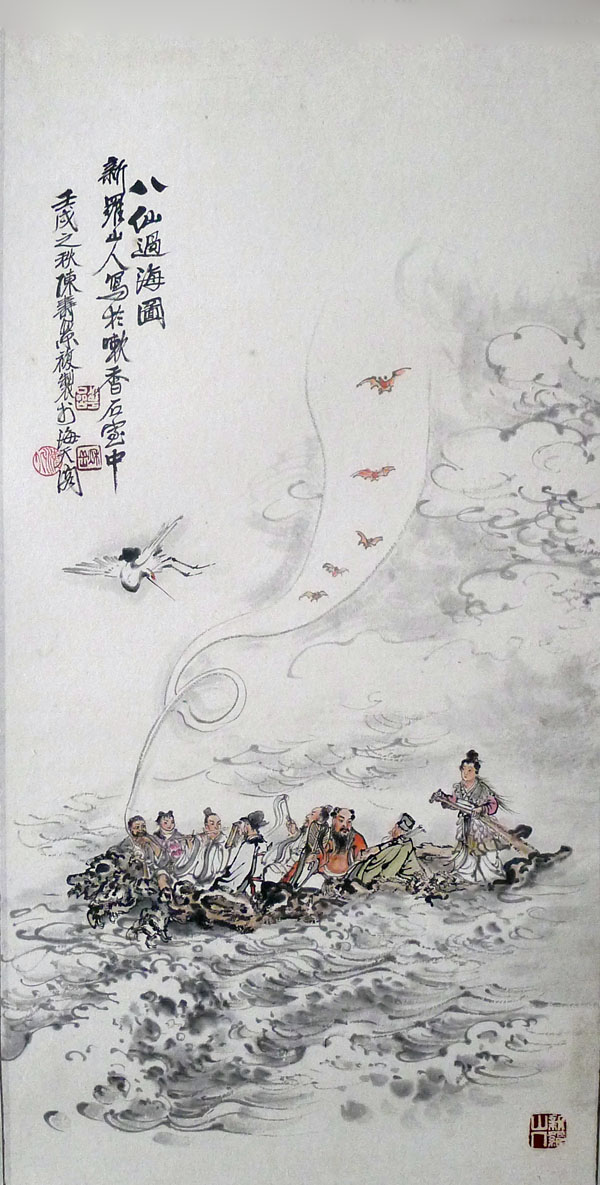 八仙過海圖
新羅山人寫於漱香石室中
壬戌之秋陳壽榮複製于海天閣
新羅山人